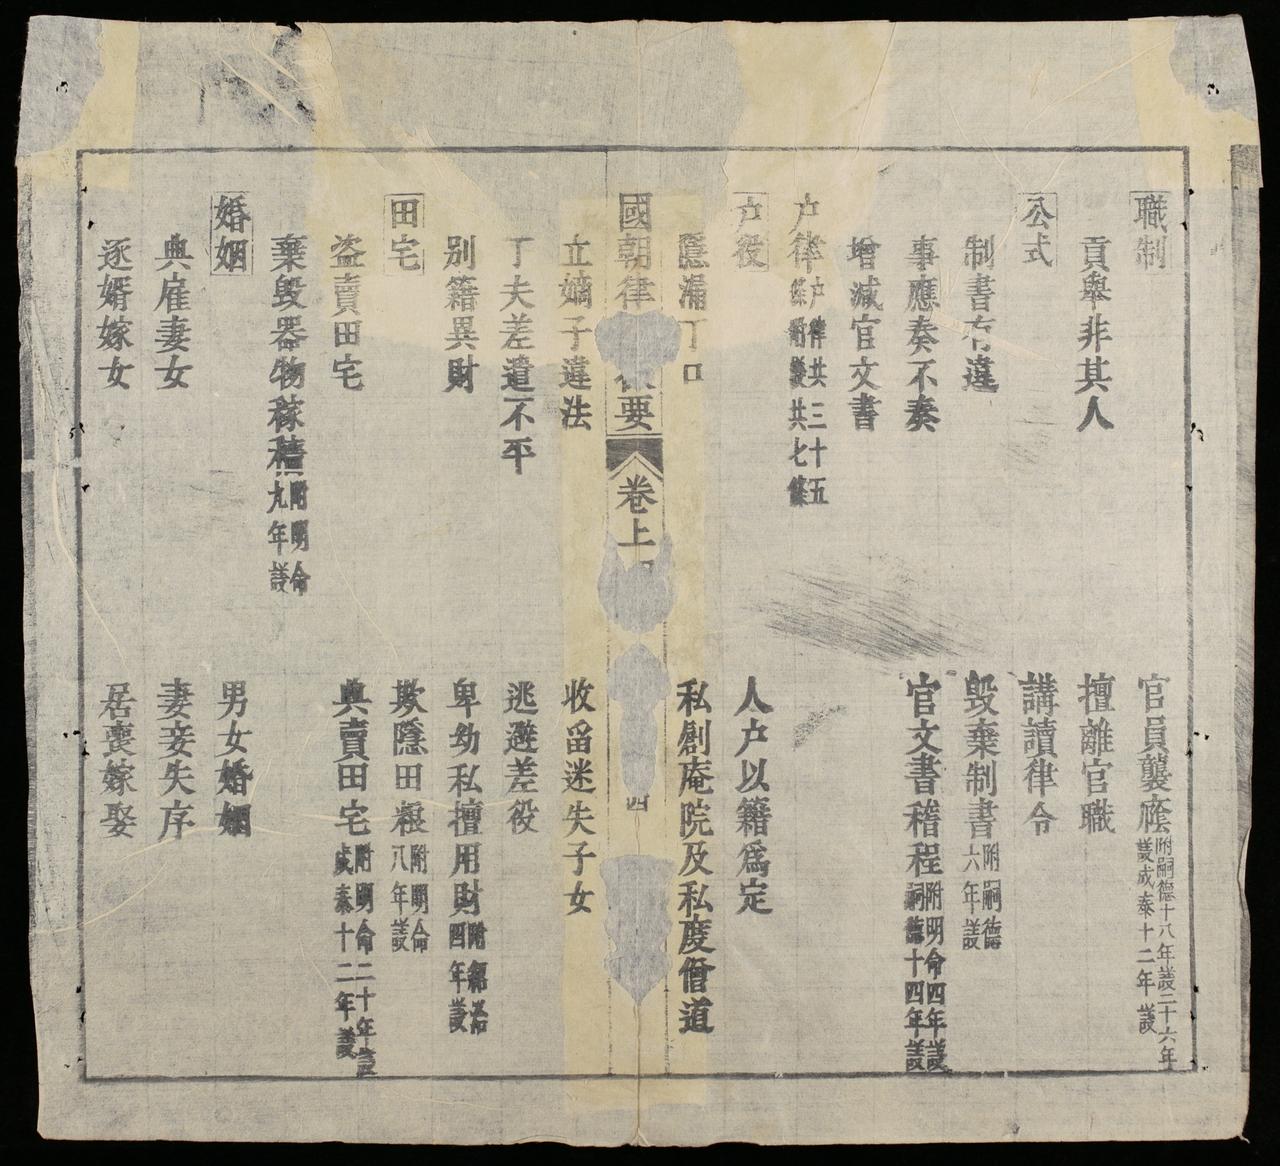 職制
官員襲廕附嗣德十八年議二十六年議成泰十二年議
貢舉非其人
擅離官職
公式
講讀律令
制書有違
毀棄制書附嗣德六年議
事應奏不奏
官文書稽程附明命四年議嗣德十四年議
增減官文書
户律户律共三十五條附議共七條
户役
人户以籍爲定
隱漏丁口
私創庵院及私度僧道
國朝律要
卷上
四
立嫡子違法
收留迷失子女
丁夫差遣不平
逃避差役
別籍異財
卑幼私擅用財附紹治四年議
田宅
欺隱田粮附明命八年議
盗賣田宅
典賣田宅附明命二十年議成泰十二年議
棄毀器物稼穡附明命九年議
婚姻
男女婚姻
典雇妻女
妻妾失序
逐婿嫁女
居喪嫁娶